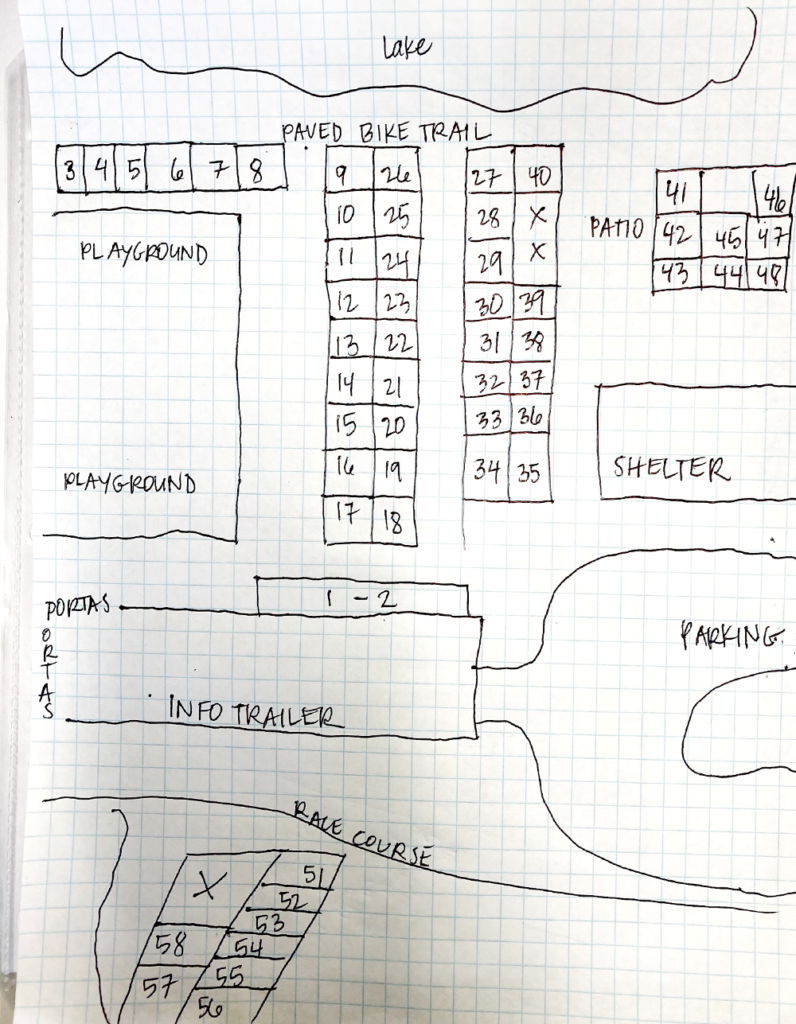 Lake
PAVED BIKE TRAIL
3 4 5 6 7 8
9 26
10 25
11 24
12 23
13 22
14 21
15 20
16 19
17 18
27 40
28 X
29 X
30 39
31 38
32 37
33 36
34 35
PATIO
41 46
42 45 47
43 44 48
PLAYGROUND
PLAYGROUND
SHELTER
1 - 2
PORTAS
PORTAS
INFO TRAILER
PARKING
RACE COURSE
X
51
52
53
58 54
57 55
56